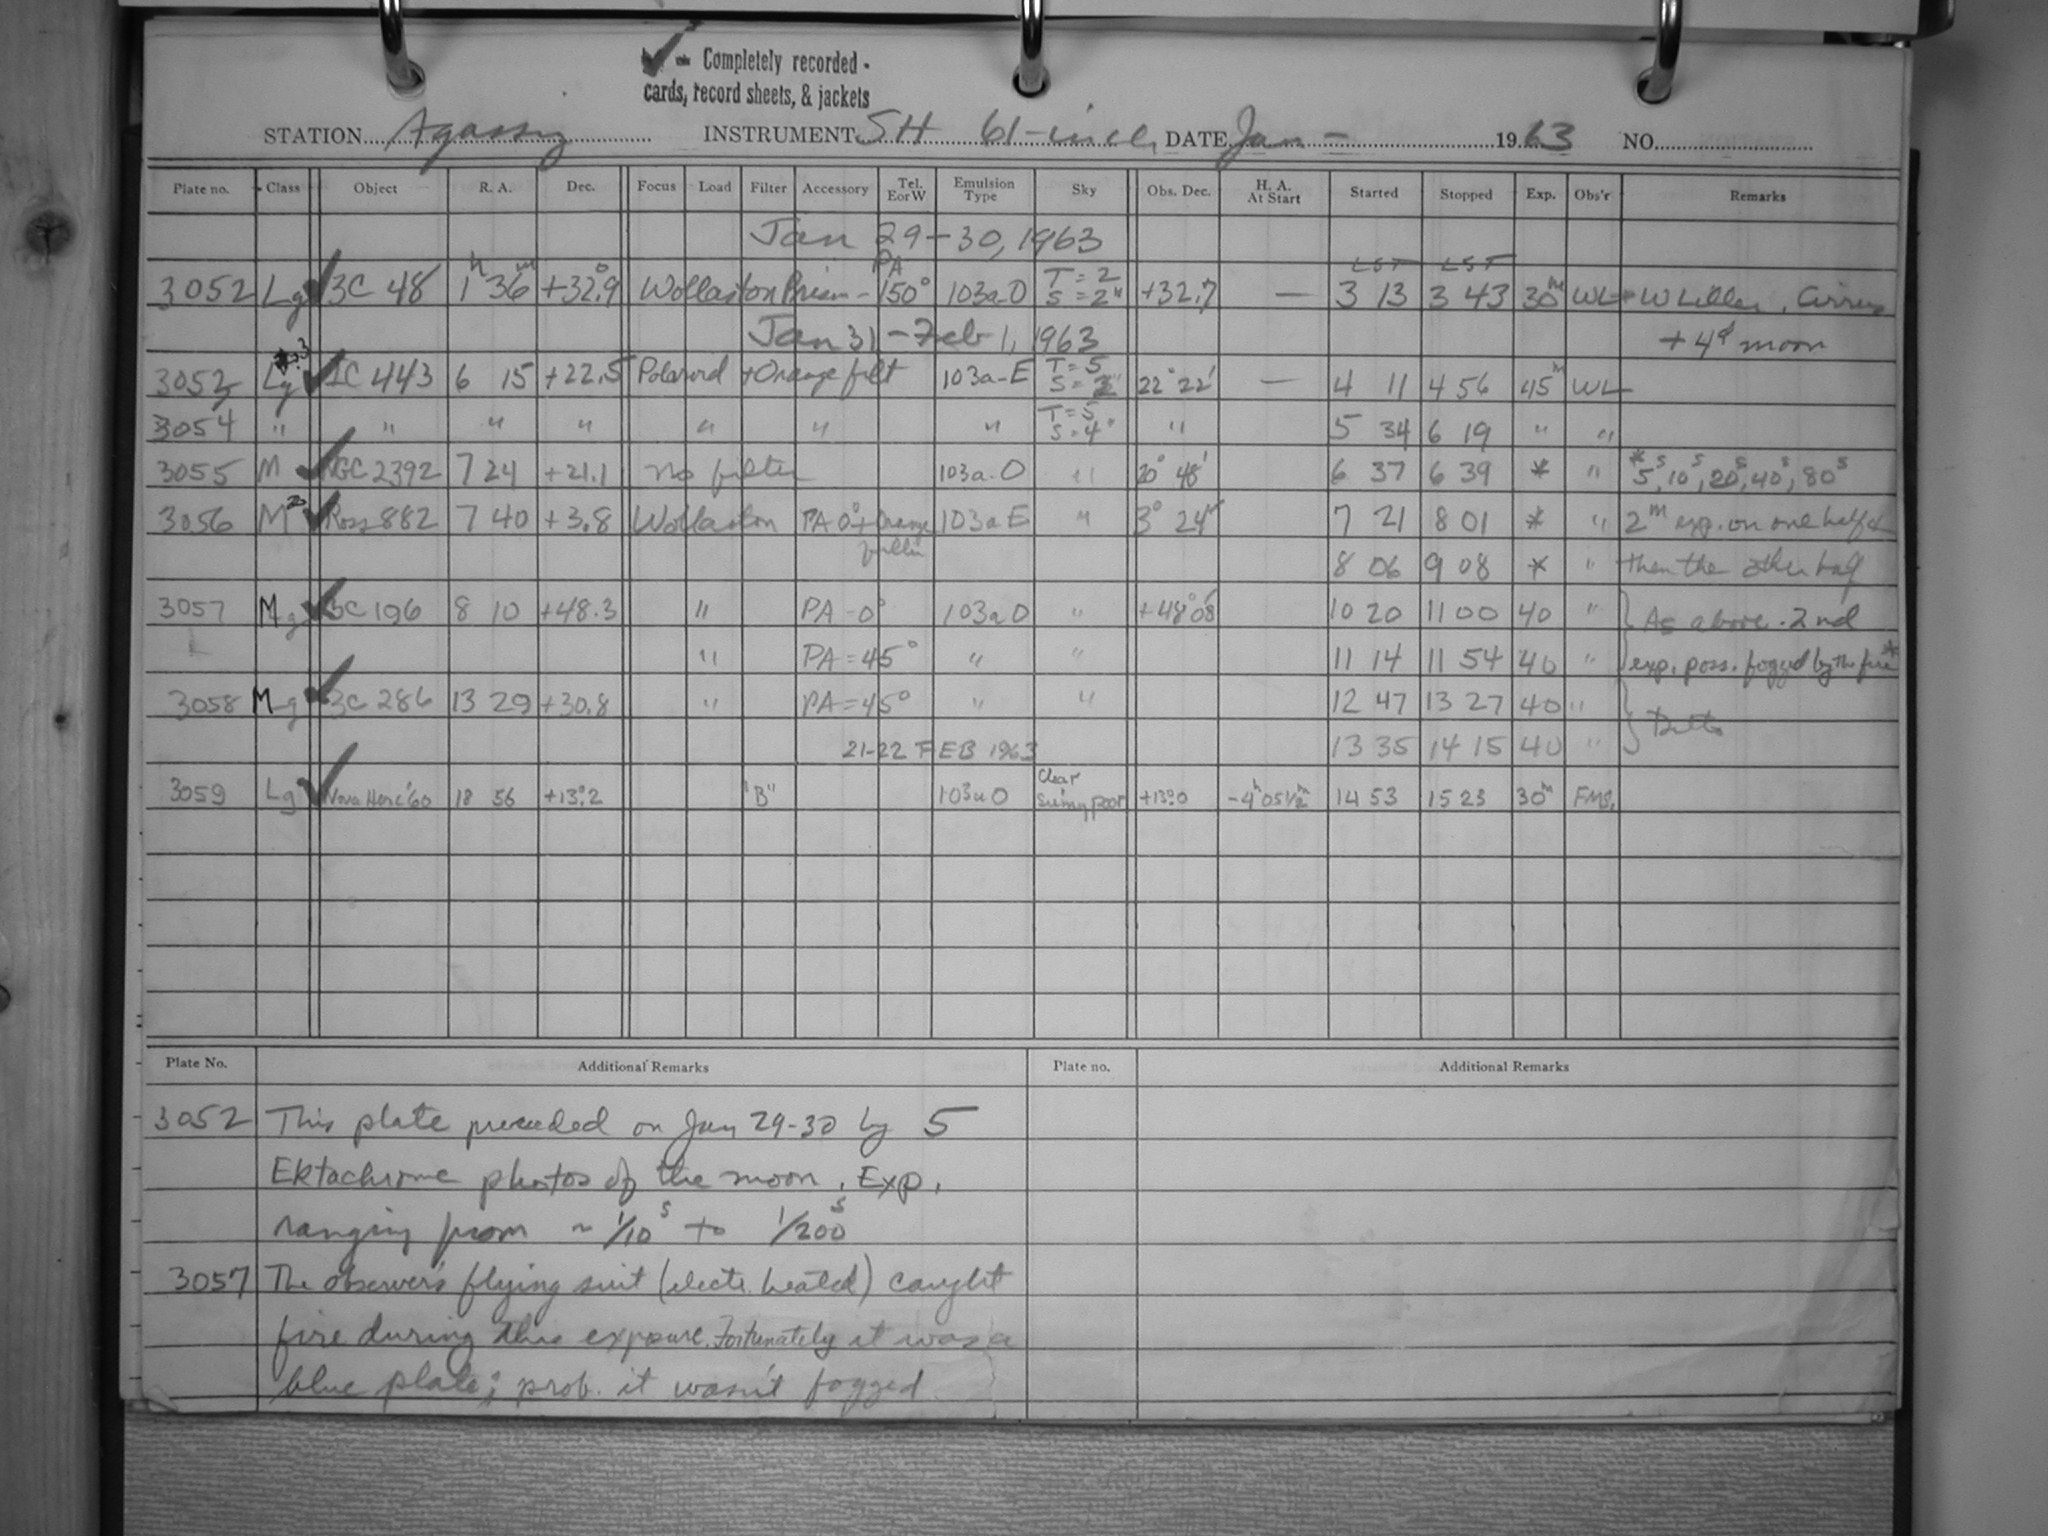 - Completely recorded -
cards, record sheets, & jackets
STATION Agassiz INSTRUMENT SH 61-inch DATE Jan - 1963 NO.
Plate no. Class Object R. A. Dec. Focus Load Filter Accessory Tel. E or W Emulsion Type Sky Obs. Dec. H. A. At Start Started Stopped Exp. Obs'r Remarks
Jan 29-30, 1963
3052 Lg 3C 48 1h 36m +32.9° Wollaston Prism - PA 150° 103a-O T=2 S=2" +32.7 — LST 3 13 LST 3 43 30m WL W Liller, Cirrus
Jan 31 - Feb 1, 1963 + 4d moon
3053 Lg IC 443 6 15 +22.5 Polaroid + Orange filt 103a-E T=5 S=3" 22° 22' — 4 11 4 56 45m WL
3054 " " " " " " " T=5 S=4" " 5 34 6 19 " "
3055 M NGC 2392 7 24 +21.1 no filter 103a-O " 20° 48' 6 37 6 39 * " * 5s, 10s, 20s, 40s, 80s
3056 M Ross 882 7 40 +3.8 Wollaston PA 0° + Orange 103aE " 3° 24' 7 21 8 01 * " 2m exp. on one half &
8 06 9 08 * " then the other half
3057 Mg 3C 196 8 10 +48.3 " PA=0° 103aO " +48°08' 10 20 11 00 40 " As above. 2nd
" PA=45° " " 11 14 11 54 40 " exp. poss. fogged by the fire*
3058 Mg 3C 286 13 29 +30.8 " PA=45° " " 12 47 13 27 40 " Ditto
21-22 FEB 1963 13 35 14 15 40 "
3059 Lg Nova Herc '60 18 56 +13°.2 "B" 103aO Clear Seeing poor +13°.0 -4h 05 1/2m 14 53 15 23 30m FMS.
Plate No. Additional Remarks Plate no. Additional Remarks
3052 This plate preceeded on Jan 29-30 by 5
Ektachrome photos of the moon. Exp.
ranging from ~ 1/10s to 1/200s
3057 The observer's flying suit (electr. heated) caught
fire during this exposure. Fortunately it was a
blue plate; prob. it wasn't fogged